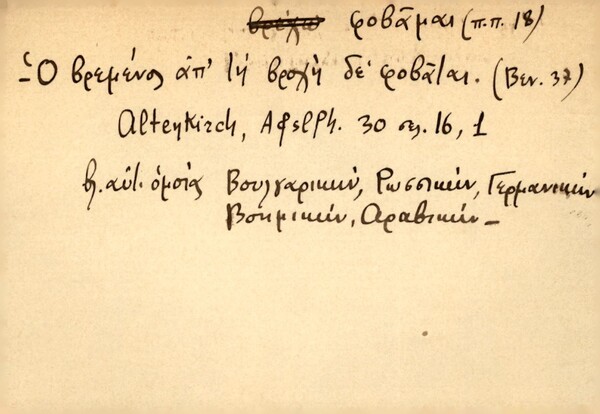 βρέχω φοβᾶμαι (π.π. 18)
- Ὁ βρεμένος ἀπ' τὴ βροχὴ δὲ φοβᾶται. (Βεν. 37)
Altenkirch, AfslPh. 30 σελ. 16, 1
βλ. αὐτ. ὁμοίας Βουλγαρικήν, Ρωσσικήν, Γερμανικήν
Βοημικήν, Αραβικήν -